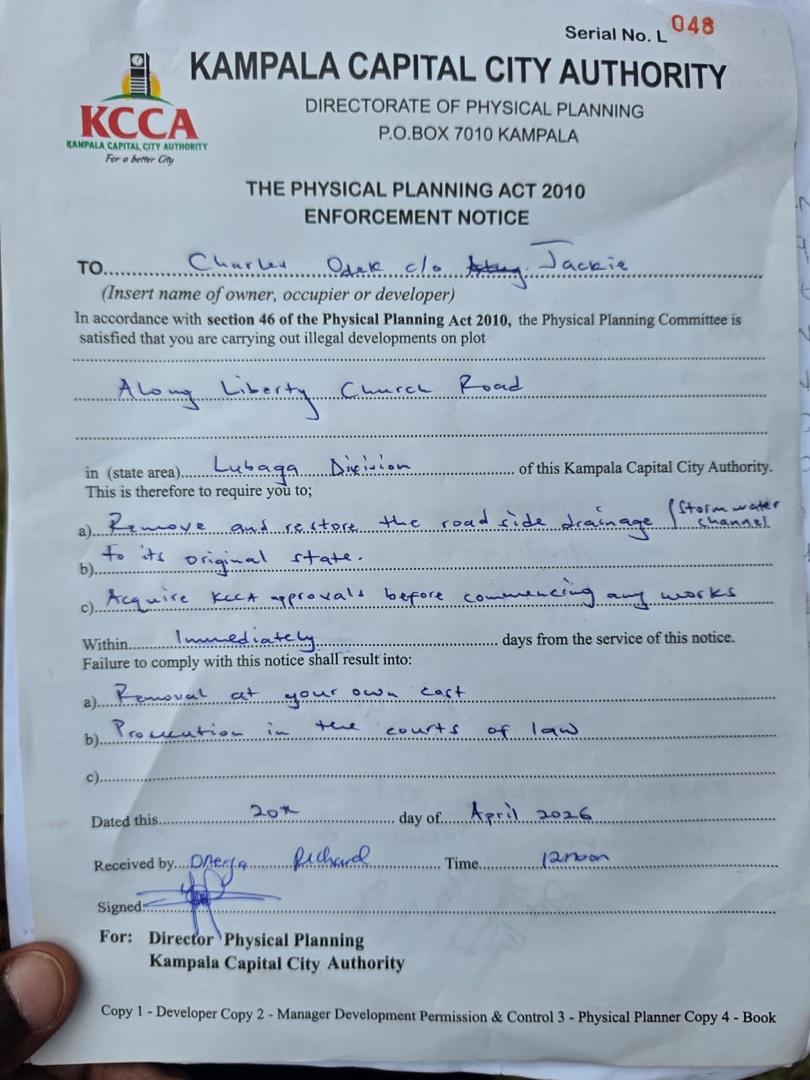 Serial No. L 048
KAMPALA CAPITAL CITY AUTHORITY
DIRECTORATE OF PHYSICAL PLANNING
P.O.BOX 7010 KAMPALA
KCCA
KAMPALA CAPITAL CITY AUTHORITY
For a better City
THE PHYSICAL PLANNING ACT 2010
ENFORCEMENT NOTICE
TO Charles Odek c/o Jackie
(Insert name of owner, occupier or developer)
In accordance with section 46 of the Physical Planning Act 2010, the Physical Planning Committee is
satisfied that you are carrying out illegal developments on plot
Along Liberty Church Road
in (state area) Lubaga Division of this Kampala Capital City Authority.
This is therefore to require you to;
a) Remove and restore the road side drainage / Storm water channel
b) to its original state.
c) Acquire KCCA approvals before commencing any works
Within Immediately days from the service of this notice.
Failure to comply with this notice shall result into:
a) Removal at your own cost
b) Prosecution in the courts of law
c)
Dated this 20th day of April 2026
Received by Richard Time 12 noon
Signed:
For: Director Physical Planning
Kampala Capital City Authority
Copy 1 - Developer Copy 2 - Manager Development Permission & Control 3 - Physical Planner Copy 4 - Book